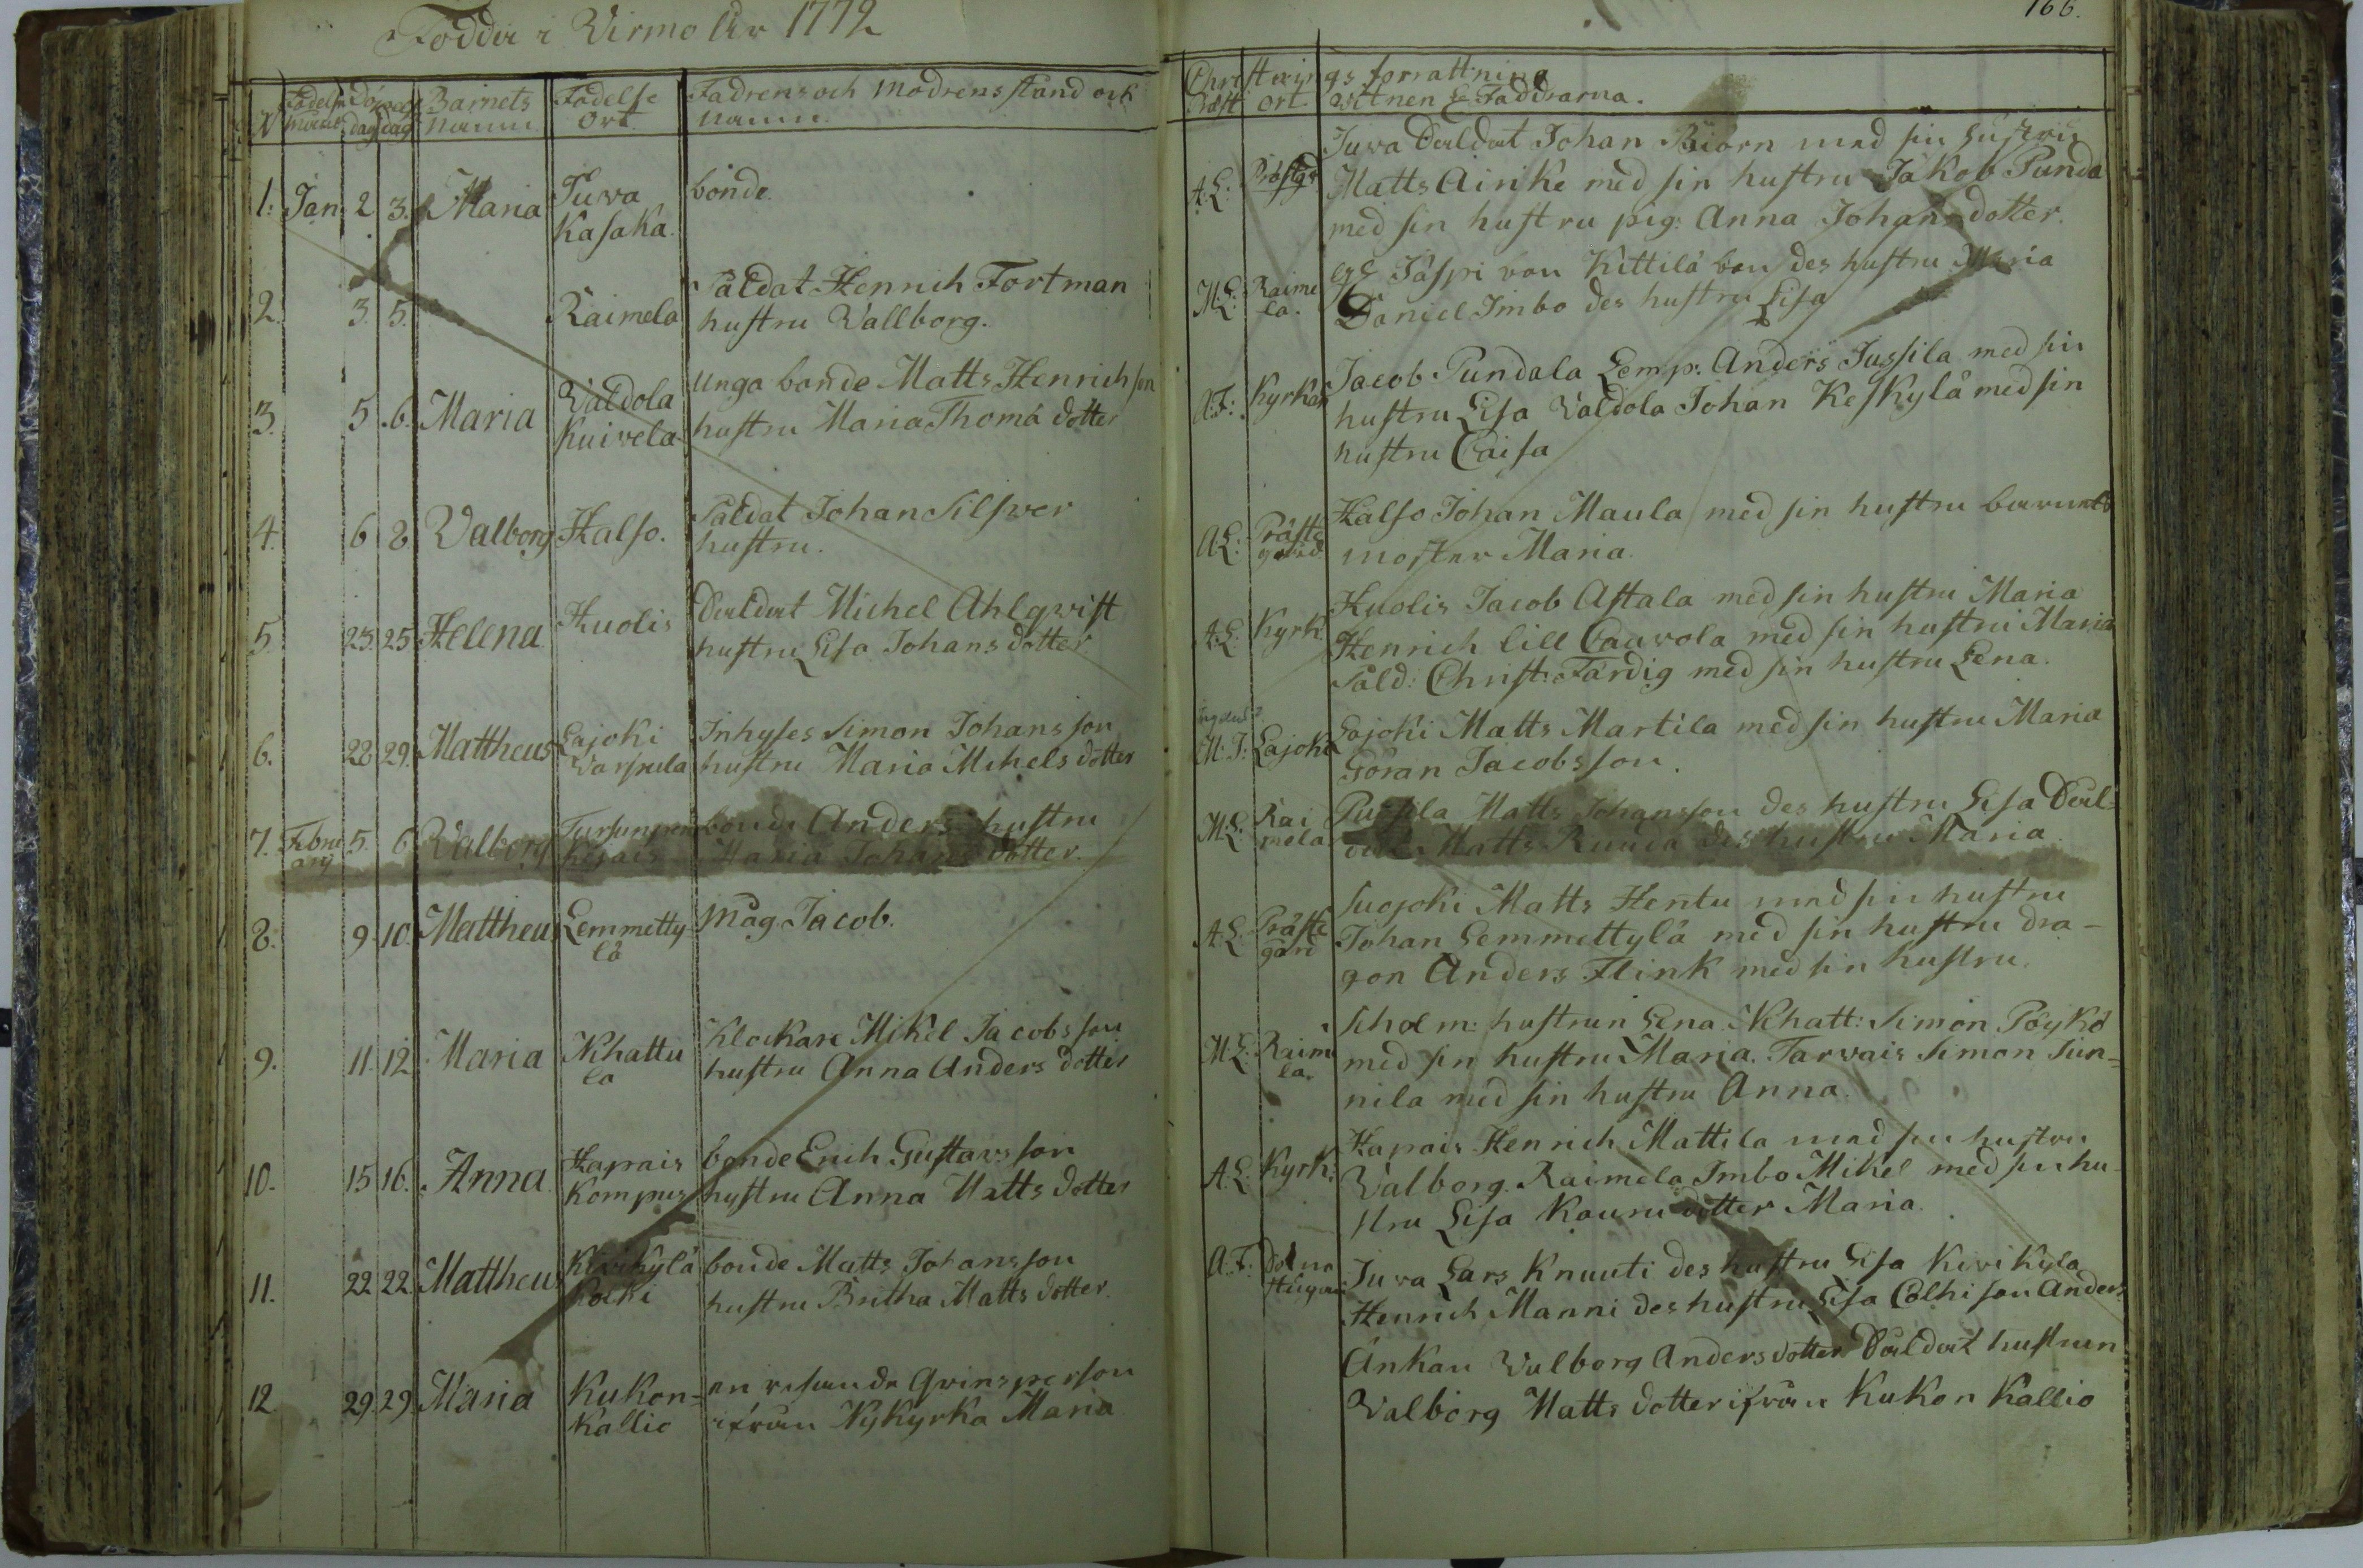 Födde i Wirmo År 1772
166.
N Födelse månat dag Döpelse dag Barnets namn Födelse Ort Fadrens och Modrens stånd och namn
Christnings förrattning
Præst Ort Witnen & Faddrarna.
1. Jan. 2 3. Maria Juwa Kasaka. bonde.
A:L: Prästg
Juwa Daldat Johan Biörn med sin hustru
Matts Airike med sin hustru Jakob Punda
med sin hustru pig: Anna Johans dotter.
2. 3. 5. Raimela Såldat Hennich Fortman
hustru Wallborg.
M:L: Raime la.
Jaspi von Kittilä bon des hustru Maria
Daniel Imbo des hustru Lisa
3. 5 6. Maria Waldola Kuivela Unga bonde Matts Henrich son
hustru Maria Thoma dotter
A:F: Kyrkan
Jacob Pundala Lemp: Anders Jussila med sin
hustru Lisa Waldola Johan Keskylä med sin
hustru Caisa
4. 6 8. Walborg Halso. Såldat Johan Silfwer
hustru.
A:L: Präste gård
Halso Johan Maula med sin hustru barnets
moster Maria.
5. 23. 25 Helena Kuolis Daldat Michel Ahlqwist
hustru Lisa Johans dotter
A:L: Kyrk
Kuolis Jacob Astala med sin hustru Maria
Henrich lill Cauvola med sin hustru Maria
Såld: Christ: Färdig med sin hustru Lena.
6. 28 29. Mattheus Lajoki Warpula Inhyses Simon Johansson
hustru Maria Mihels dotter
M:I: Lajoki
Lajoki Matts Martila med sin hustru Maria
Göran Jacobsson.
7. Febru ary 5. 6 Walborg bonde Anders hustru
Maria Johans dotter.
M:L: Rai mela
Pursila Matts Johansson des hustru Lisa Dal-
dat Matts Runda des hustru Maria.
8. 9. 10. Mattheus Lemmetty lä Måg Jacob.
A:L: Präste gård
Suojoki Matts Hentu med sin hustru
Johan Lemmettylä med sin hustru dra-
gon Anders Flink med sin hustru.
9. 11. 12 Maria Nihattu la Klockare Mikel Jacobsson
hustru Anna Anders dotter
M:L: Raime la.
Scholm: hustrun Lena. Nihatt: Simon Pöykö
med sin hustru Maria. Tarvais Simon Sun-
nila med sin hustru Anna.
10. 15 16. Anna Hapais Kompus bonde Erich Gustavsson
hustru Anna Matts dotter
A:L: Kyrk:
Hapais Henrich Mattila med sin hustru
Walborg. Raimela Imbo Mikel med sin hu-
stru Lisa Kouru dotter Maria.
11. 22 22 Mattheus Kivikylä bonde Matts Johansson
hustru Britha Matts dotter.
A:F:
Juva Lars Knuuti des hustru Lisa Kivikyla
Henrich Manni des hustru Lisa Colhi son Anders
12. 29. 29. Maria Kukon- Kallio en resande Qvinsperson
ifrån Nykyrka Maria
Änkan Walborg Anders dotter Daldat hustrun
Walborg Matts dotter ifrån Kukon Kallio